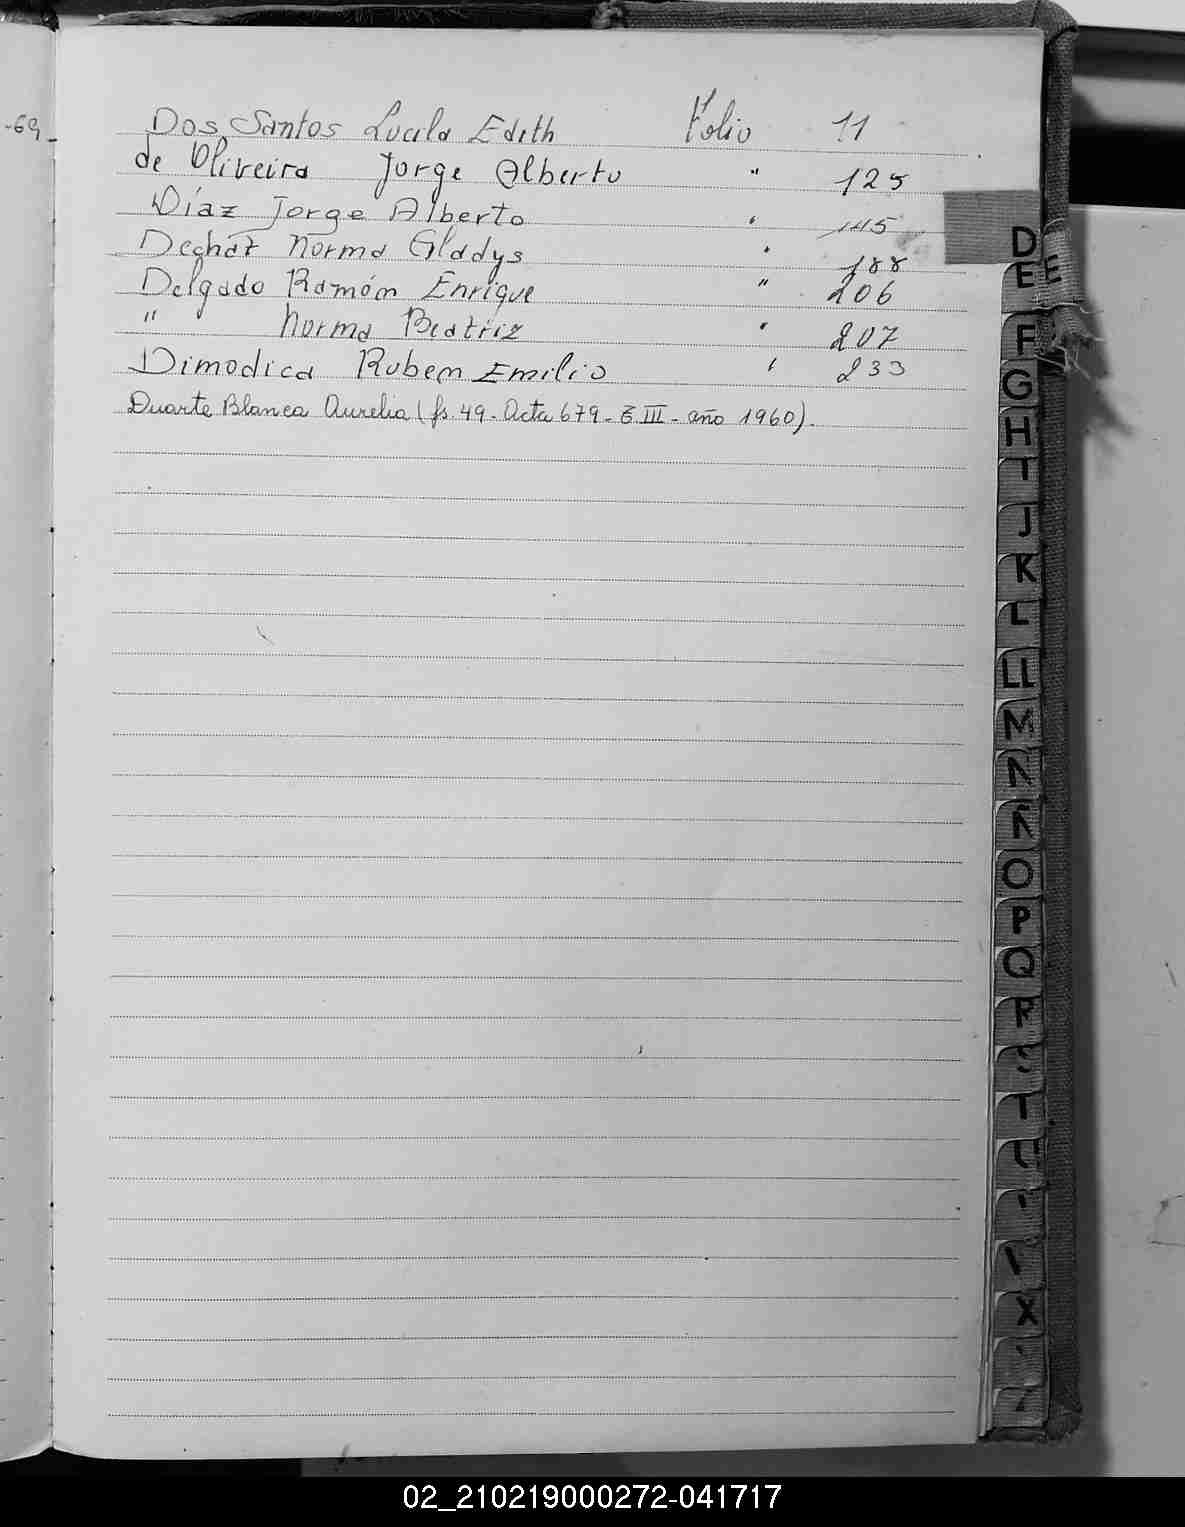 -69-
Dos Santos Lucila Edith Folio 11
de Oliveira Jorge Alberto " 125
Díaz Jorge Alberto " 145
Dechat Norma Gladys " 188
Delgado Ramón Enrique " 206
" Norma Beatriz " 207
Dimodica Ruben Emilio " 233
Duarte Blanca Aurelia (fs. 49- Acta 679- T. III - año 1960).
D
E E
F
G
H
I
J
K
L
LL
M
N
Ñ
O
P
Q
R
T
X
02_210219000272-041717